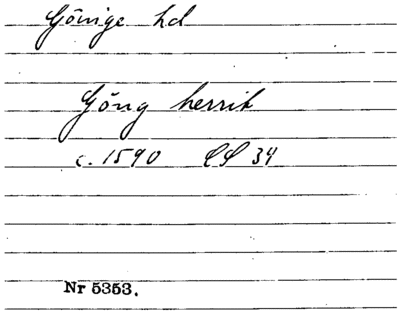 Göinge hd
Göng herrit
c. 1590 CS 34
Nr 5353.